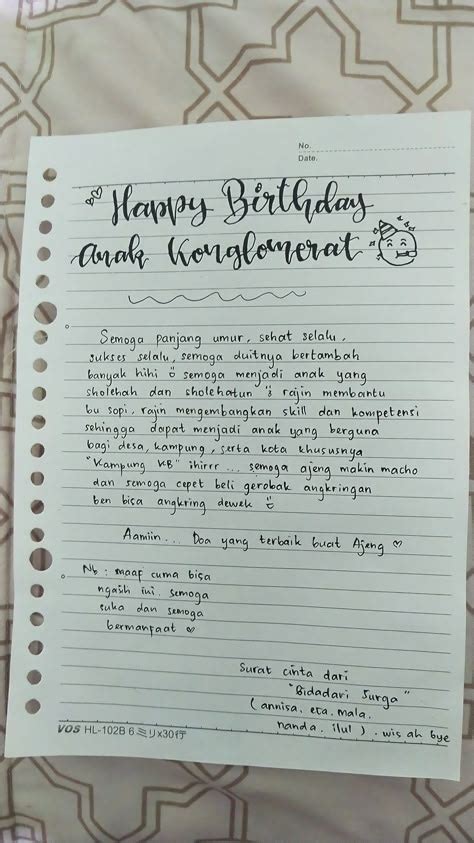 No.
Date.
Happy Birthday
Anak Konglomerat
Semoga panjang umur, sehat selalu,
sukses selalu, semoga duitnya bertambah
banyak hihi semoga menjadi anak yang
sholehah dan sholehatun rajin membantu
bu sopi, rajin mengembangkan skill dan kompetensi
sehingga dapat menjadi anak yang berguna
bagi desa, kampung, serta kota khususnya
"Kampung KB" ihirrr ... semoga ajeng makin macho
dan semoga cepet beli gerobak angkringan
ben bisa angkring dewek
Aamiin... Doa yang terbaik buat Ajeng ♡
Nb : maaf cuma bisa
ngasih ini. semoga
suka dan semoga
bermanfaat ♡
Surat cinta dari
"Bidadari Surga"
(annisa, eta, mala,
nanda, ilul). wis ah bye
VOS HL-102B 6ミリx30行